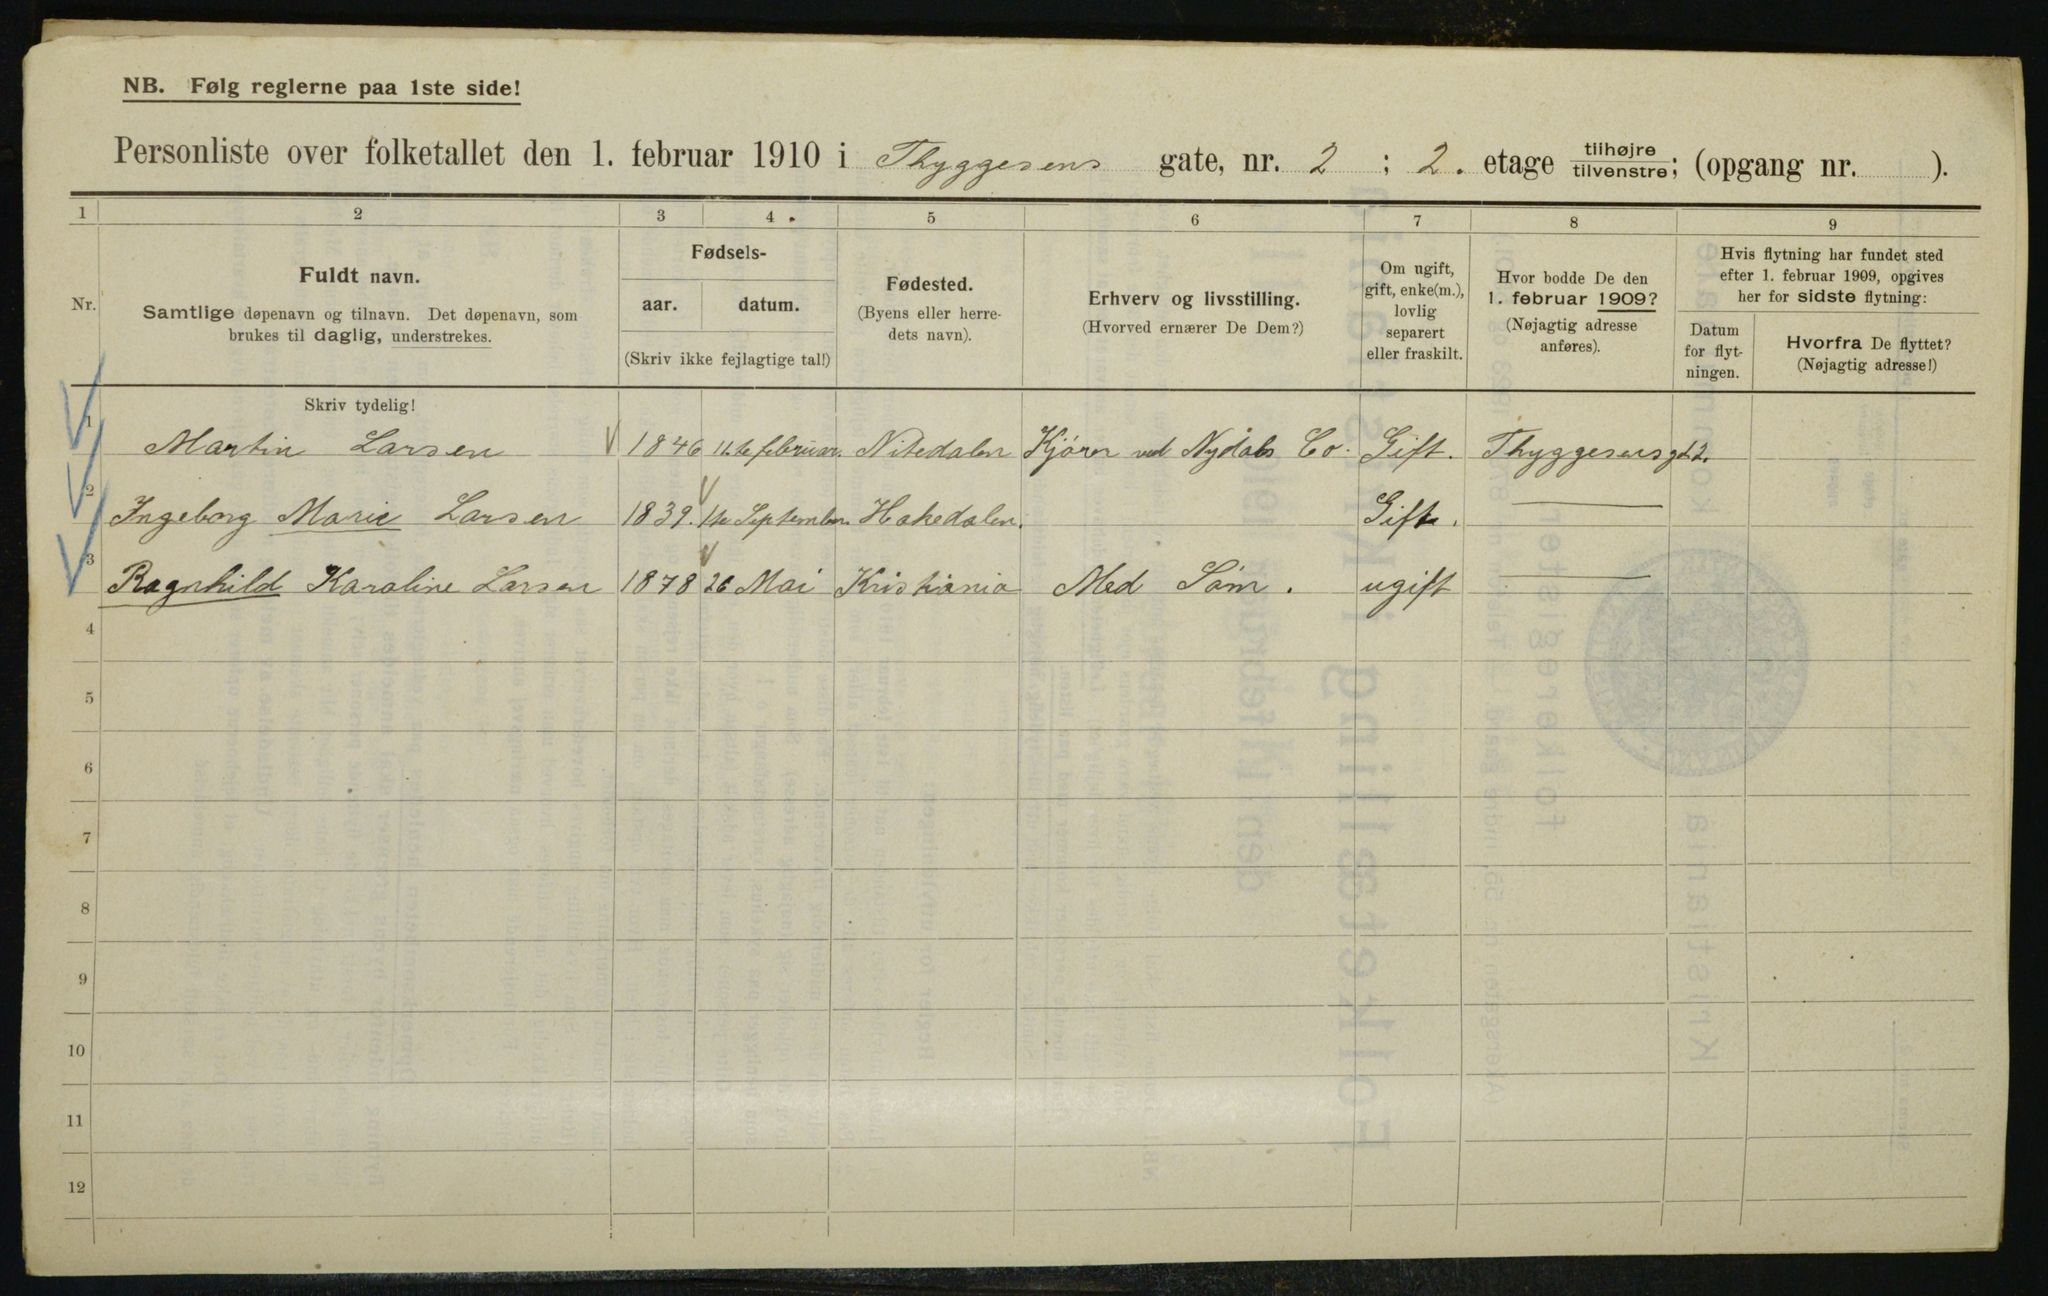 NB. Følg reglerne paa 1ste side!
Personliste over folketallet den 1. februar 1910 i Thyggesens gate, nr. 2 ; 2. etage tilhøjre tilvenstre; (opgang nr. ).
1 2 3 4 5 6 7 8 9
Nr.
Fuldt navn.
Samtlige døpenavn og tilnavn. Det døpenavn, som
brukes til daglig, understrekes.
Fødsels-
aar. datum.
(Skriv ikke fejlagtige tal!)
Fødested.
(Byens eller herre-
dets navn).
Erhverv og livsstilling.
(Hvorved ernærer De Dem?)
Om ugift,
gift, enke(m.),
lovlig
separert
eller fraskilt.
Hvor bodde De den
1. februar 1909?
(Nøjagtig adresse
anføres).
Hvis flytning har fundet sted
efter 1. februar 1909, opgives
her for sidste flytning:
Datum
for flyt-
ningen.
Hvorfra De flyttet?
(Nøjagtig adresse!)
Skriv tydelig!
1 Martin Larsen 1846 11te februar. Nitedalen Kjører ved Nydals Co. Gift. Thyggesensgt 2.
2 Ingeborg Marie Larsen 1839. 1te September. Hakedalen. Gift.
3 Ragnhild Karoline Larsen 1878 26 Mai Kristiania Med Søm. ugift
4
5
6
7
8
9
10
11
12